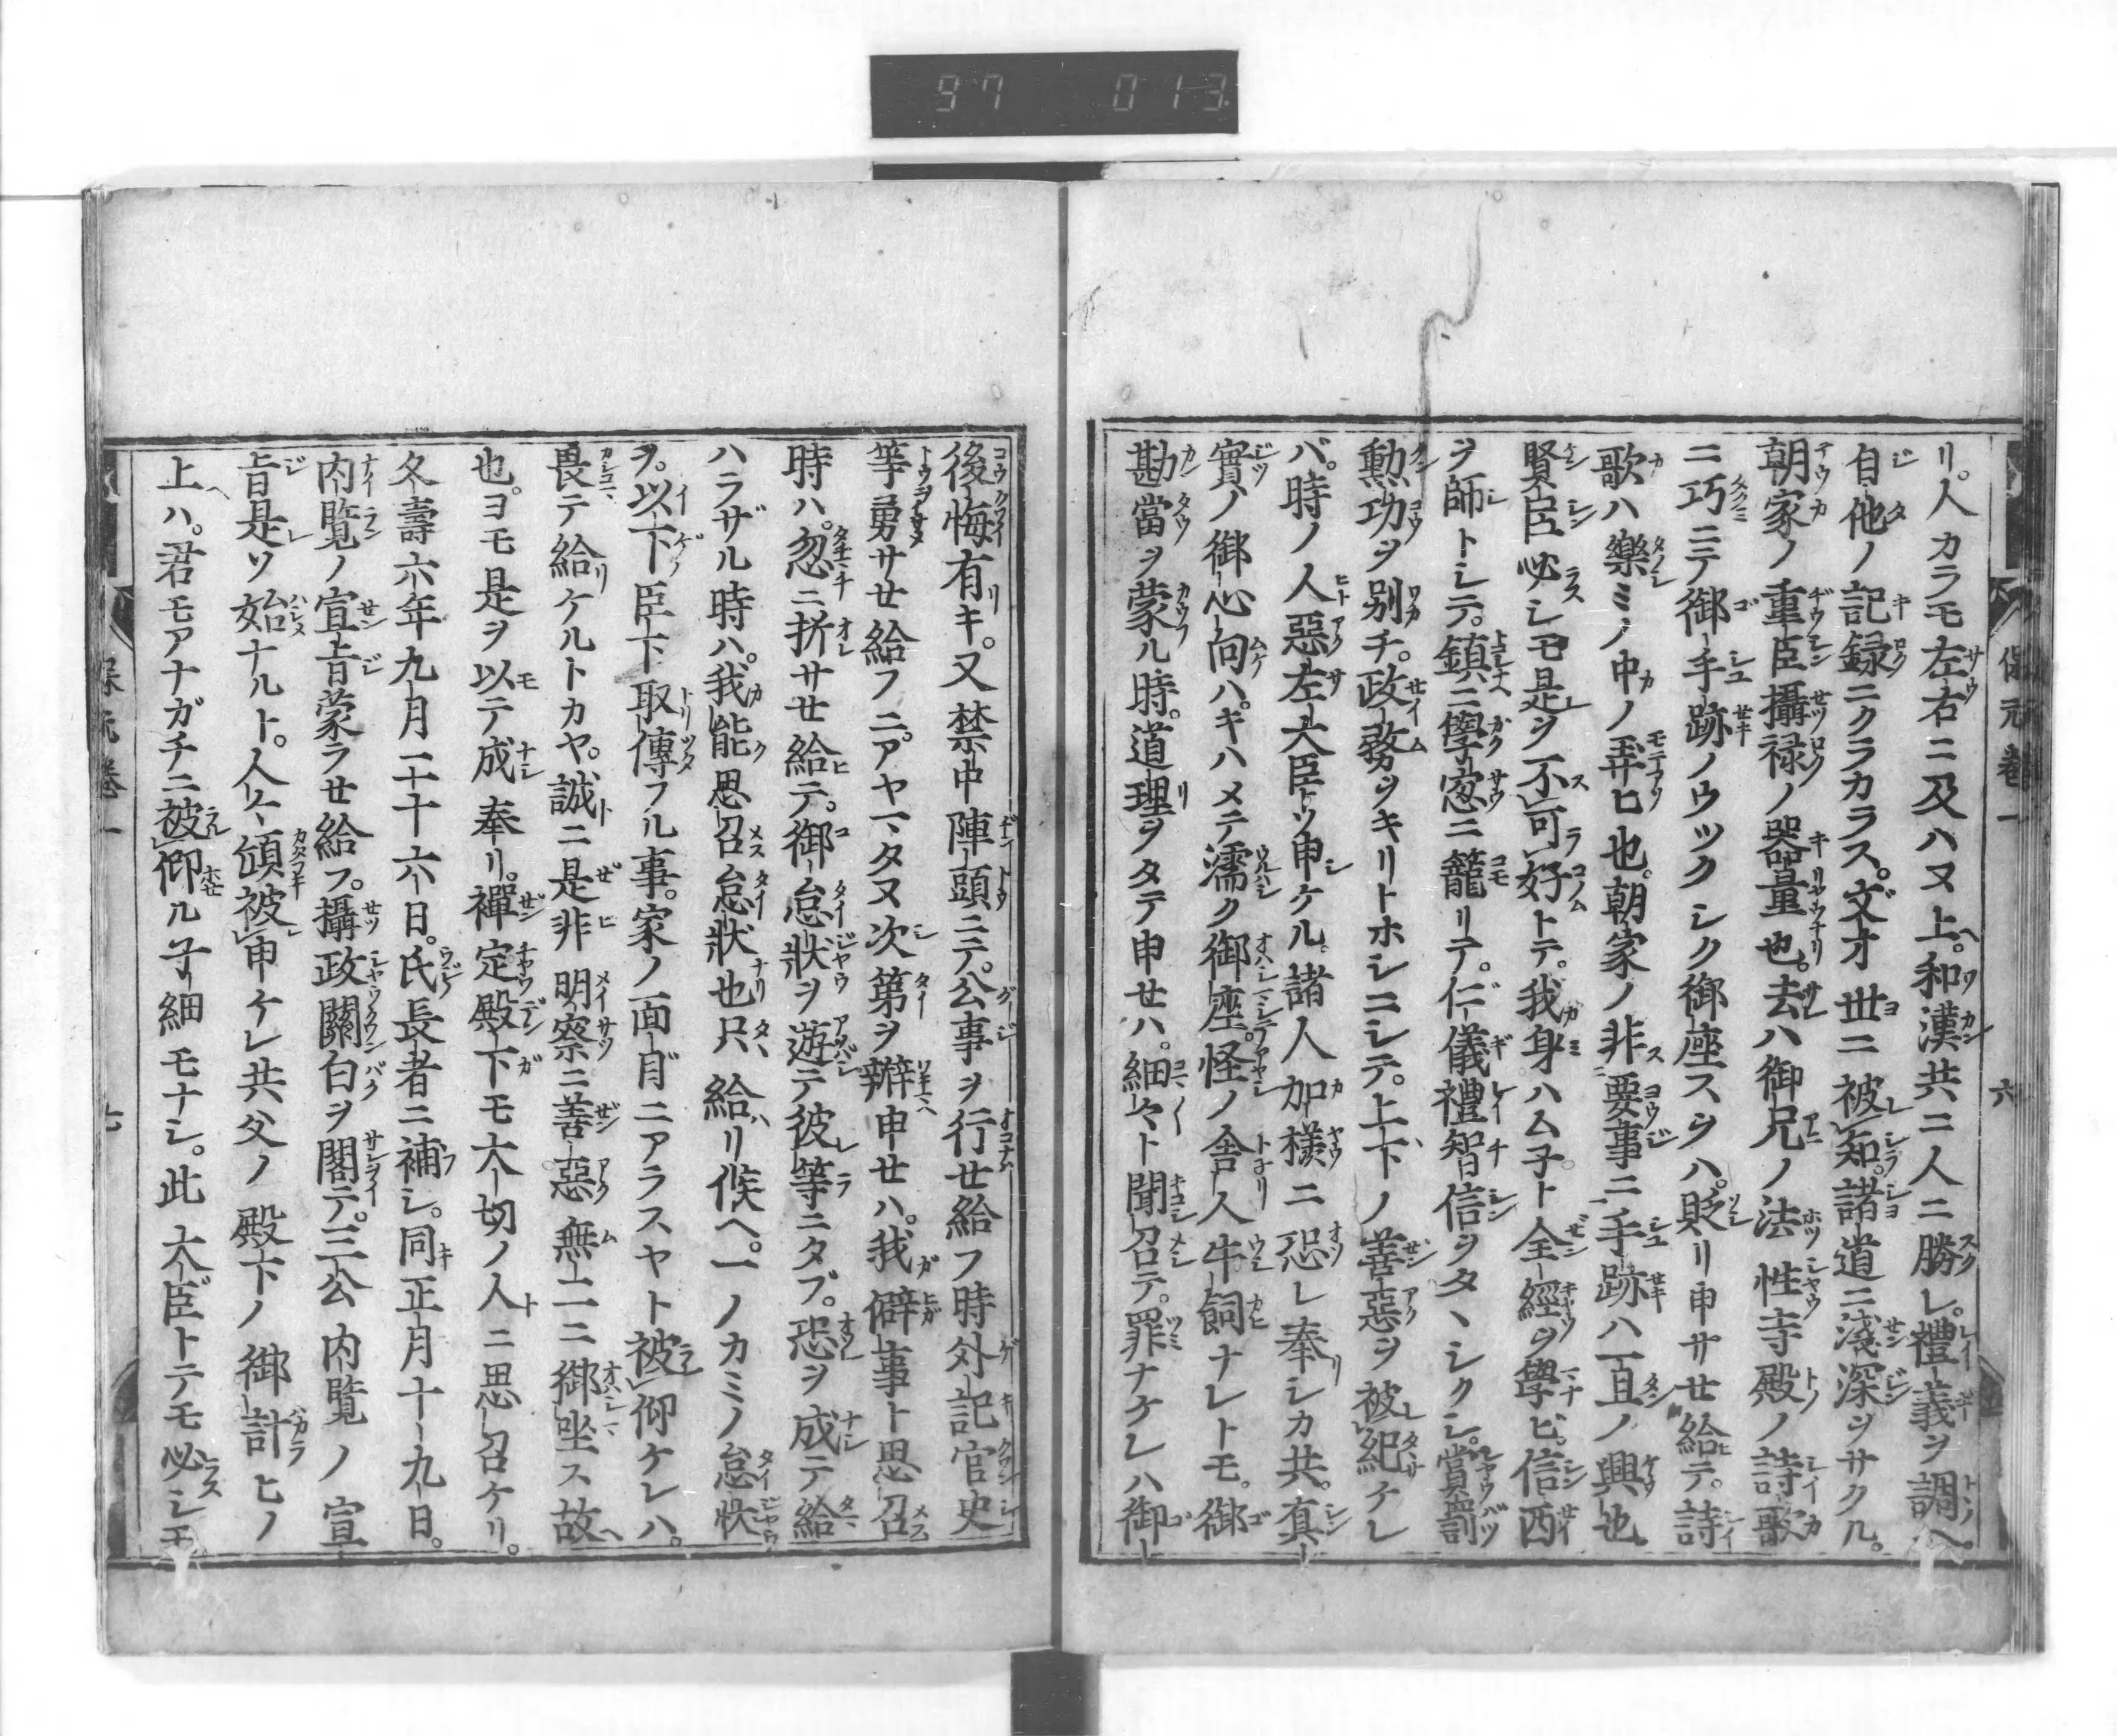 97 013
保元卷一 六
リ。人カラモ左右ニ及ハヌ上。和漢共ニ人ニ勝レ。禮義ヲ調ヘ
自他ノ記録ニクラカラス。文才世ニ被知。諸道ニ淺深ヲサクル。
朝家ノ重臣攝禄ノ器量也。去ハ御兄ノ法性寺殿ノ詩歌
ニ巧ニテ御手跡ノウツクシク御座スヲハ。貶リ申サせ給テ。詩
歌ハ樂ミノ中ノ弄ヒ也。朝家ノ非要事ニ。手跡ハ一旦ノ興也
賢臣必シモ是ヲ不可好トテ。我身ハム子ト全經ヲ學ビ。信西
ヲ師トシテ。鎮ニ學窓ニ籠リテ。仁儀禮智信ヲタヽシクシ。賞罰
勲功ヲ別チ。政務ヲキリトホシニシテ。上下ノ善惡ヲ被紀ケレ
バ。時ノ人惡左大臣トソ申ケル。諸人加様ニ恐レ奉シカ共。真
實ノ御心向ハ。キハメテ濡ク御座。怪ノ舎人牛飼ナレトモ。御
勘當ヲ蒙ル時。道理ヲタテ申せハ。細々ト聞召テ。罪ナケレハ御
後悔有キ。又禁中陣頭ニテ。公事ヲ行せ給フ時外記官史
等勇サせ給フニ。アヤマタヌ次第ヲ辨申せハ。我僻事ト思召
時ハ。忽ニ折サせ給テ。御怠狀ヲ遊テ彼等ニタブ。恐ヲ成テ給
ハラザル時ハ。我能思召怠狀也只給リ候ヘ。一ノカミノ怠狀
ヲ。以下臣下取傳フル事。家ノ面目ニアラスヤト被仰ケレハ。
畏テ給ケルトカヤ。誠ニ是非明察ニ善惡無二ニ御坐ス故
也。ヨモ是ヲ以テ成奉リ。禪定殿下モ大切ノ人ニ思召ケリ。
久壽六年九月二十六日。氏長者ニ補シ。同正月十九日。
内覽ノ宣旨蒙ラせ給フ。攝政關白ヲ閣テ。三公内覽ノ宣
旨是ソ始ナルト。人々傾被申ケレ共父ノ殿下ノ御計ヒノ
上ハ。君モアナガチニ被仰ル子細モナシ。此大臣トテモ必シモ
保元卷一 七